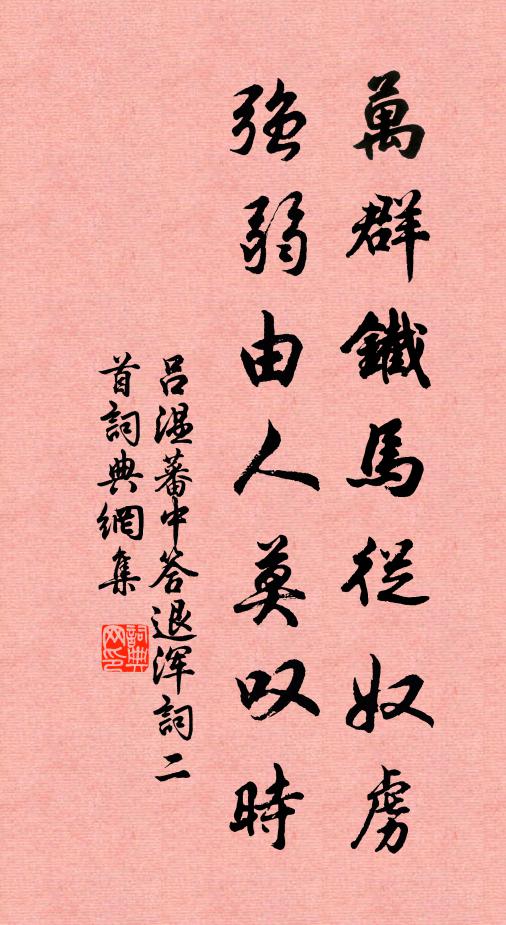 萬群鐵馬從奴虜
強弱由人莫叹時
吕温蕃中答退浑詞二
首詞典網集
詞典網印